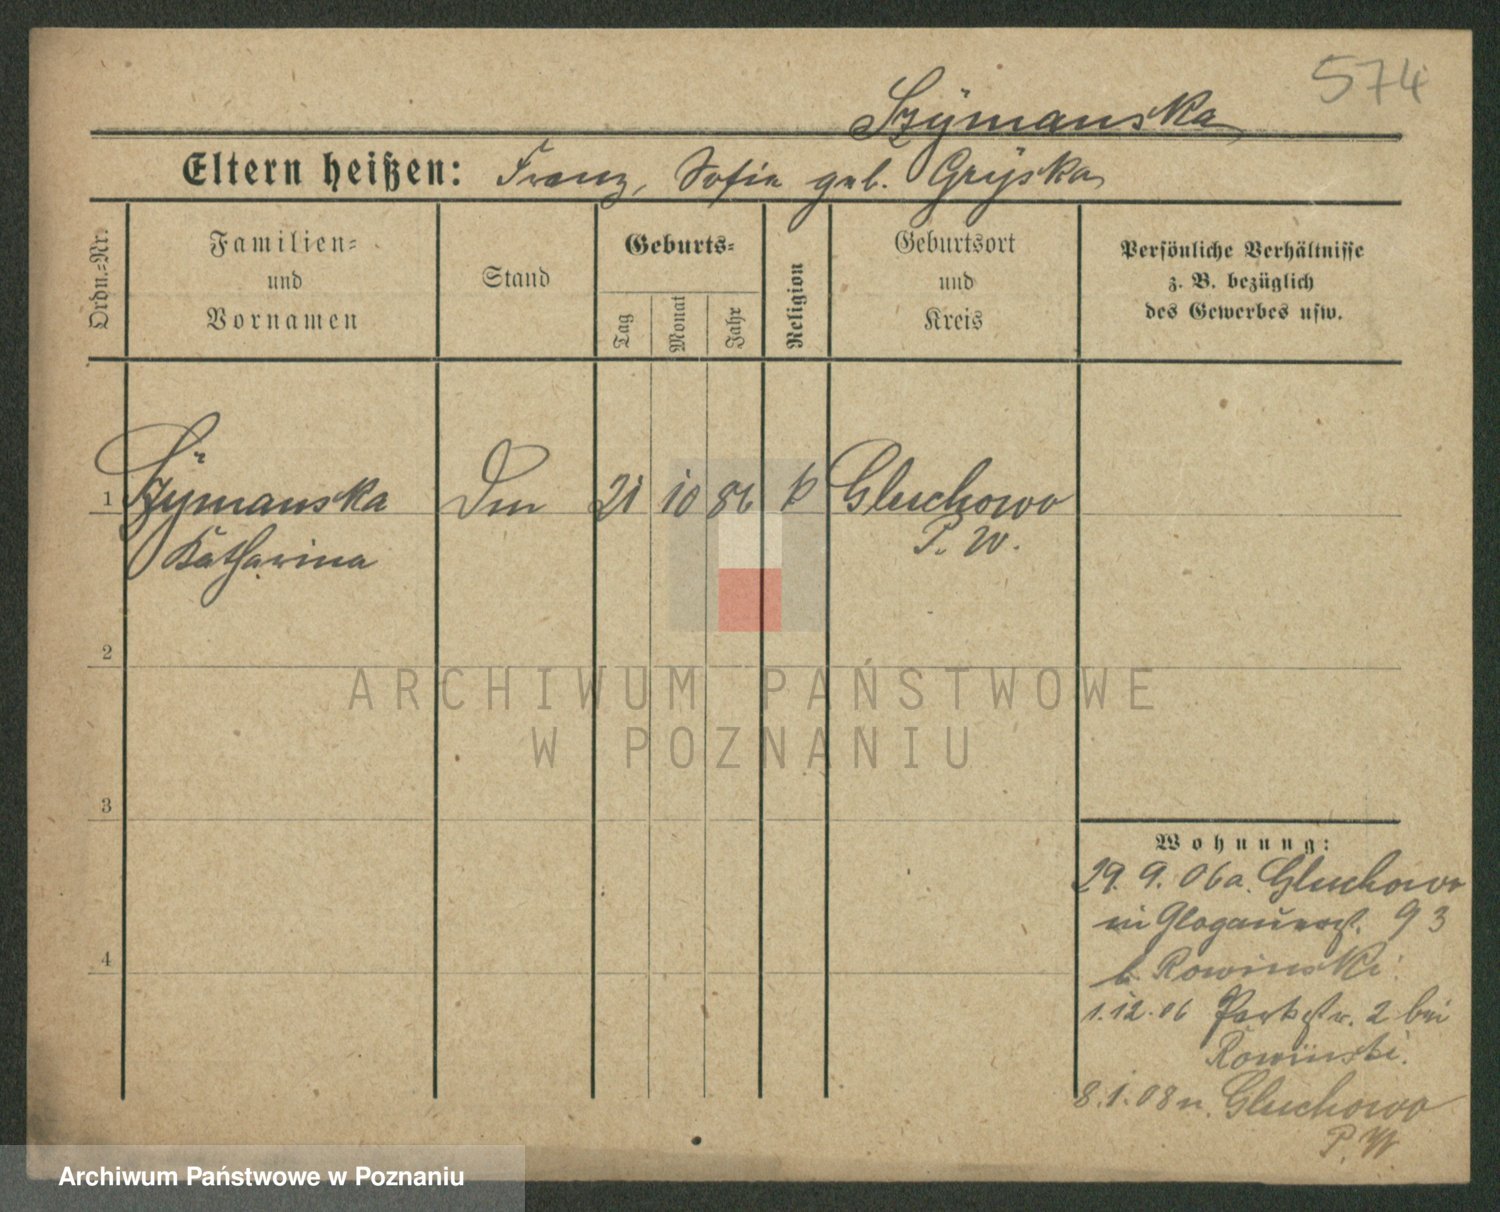 574
Szÿmanska
Eltern heißen: Franz, Sofia geb. Gryska
Ordn.=Nr.
Familien=
und
Vornamen
Stand
Geburts=
Tag
Monat
Jahr
Religion
Geburtsort
und
Kreis
Persönliche Verhältnisse
z. B. bezüglich
des Gewerbes usw.
1 Szÿmanska 21 10 86 k Gluchowo
Katharina P. W.
2
3
4
Wohnung:
29. 9. 06 a. Gluchowo
in Glogauerst. 93
b. Rowinski
1.12.06 Parkstr. 2 bei
Rowinski.
8.1.08 n. Gluchowo
P. W
ARCHIWUM PAŃSTWOWE
W POZNANIU
Archiwum Państwowe w Poznaniu